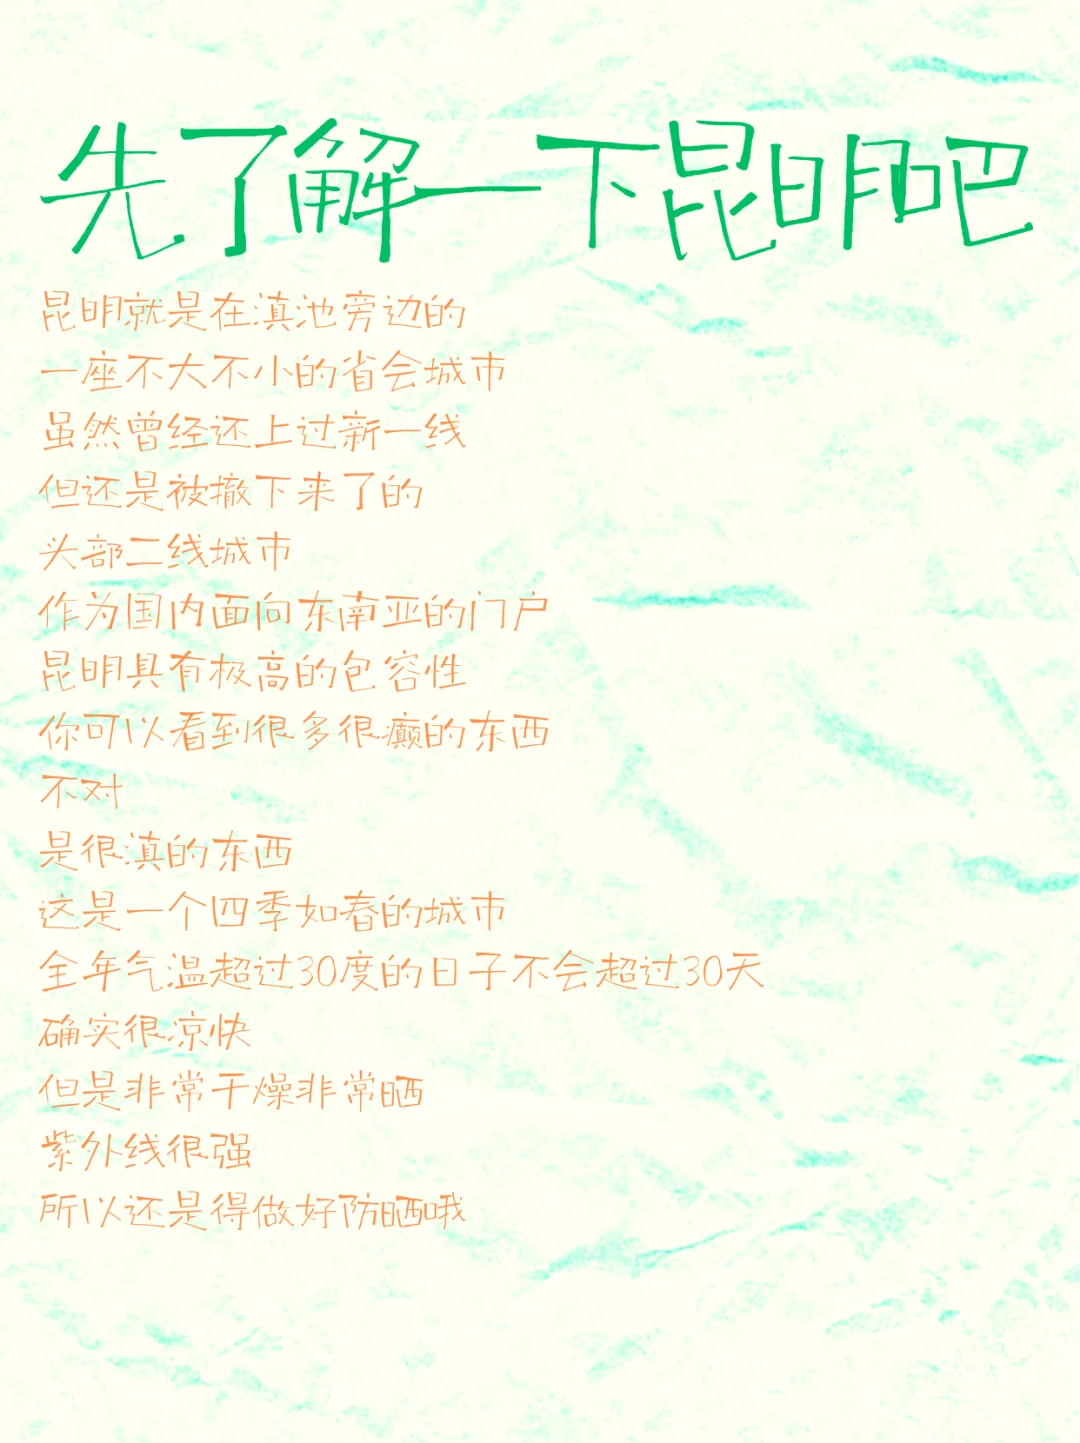 先了解一下昆明吧
昆明就是在滇池旁边的
一座不大不小的省会城市
虽然曾经还上过新一线
但还是被撤下来了的
头部二线城市
作为国内面向东南亚的门户
昆明具有极高的包容性
你可以看到很多很癫的东西
不对
是很滇的东西
这是一个四季如春的城市
全年气温超过30度的日子不会超过30天
确实很凉快
但是非常干燥非常晒
紫外线很强
所以还是得做好防晒哦